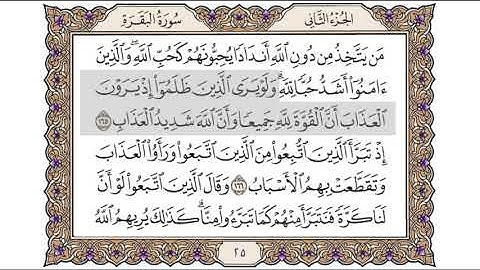 الجزء الثاني
سورة البقرة
مَن يَتَّخِذُ مِن دُونِ اللَّهِ أَندَادًا يُحِبُّونَهُمْ كَحُبِّ اللَّهِ ۖ وَالَّذِينَ
ءَامَنُوٓا۟ أَشَدُّ حُبًّا لِّلَّهِ ۗ وَلَوْ يَرَى الَّذِينَ ظَلَمُوٓا۟ إِذْ يَرَوْنَ
الْعَذَابَ أَنَّ الْقُوَّةَ لِلَّهِ جَمِيعًا وَأَنَّ اللَّهَ شَدِيدُ الْعَذَابِ ١٦٥
إِذْ تَبَرَّأَ الَّذِينَ اتُّبِعُوا۟ مِنَ الَّذِينَ اتَّبَعُوا۟ وَرَأَوُا۟ الْعَذَابَ
وَتَقَطَّعَتْ بِهِمُ الْأَسْبَابُ ١٦٦ وَقَالَ الَّذِينَ اتَّبَعُوا۟ لَوْ أَنَّ
لَنَا كَرَّةً فَنَتَبَرَّأَ مِنْهُمْ كَمَا تَبَرَّءُوا۟ مِنَّا ۗ كَذَٰلِكَ يُرِيهِمُ اللَّهُ
٢٥